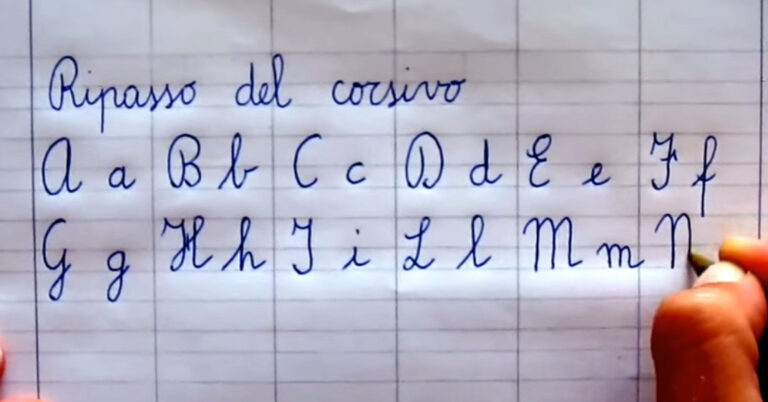 Ripasso del corsivo
A a B b C c D d E e F f
G g H h I i L l M m N